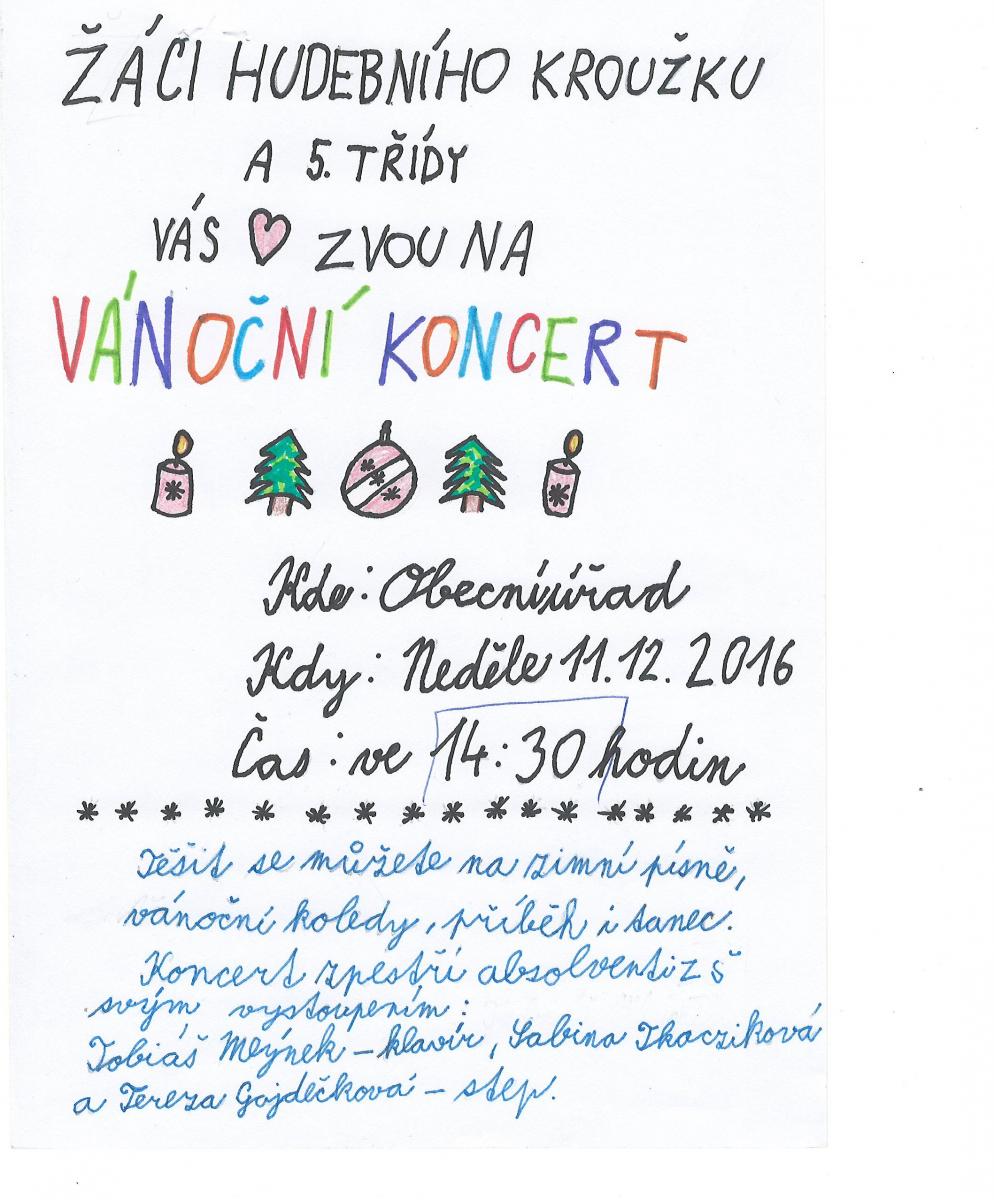 ŽÁCI HUDEBNÍHO KROUŽKU
A 5. TŘÍDY
VÁS ZVOU NA
VÁNOČNÍ KONCERT
Kde: Obecní úřad
Kdy: Neděle 11.12.2016
Čas: ve 14:30 hodin
Těšit se můžete na zimní písně,
vánoční koledy, příběh i tanec.
Koncert zpestří absolventi ZŠ
svým vystoupením:
Tobiáš Mlýnek – klavír, Sabina Tkacziková
a Tereza Gajdečková – step.